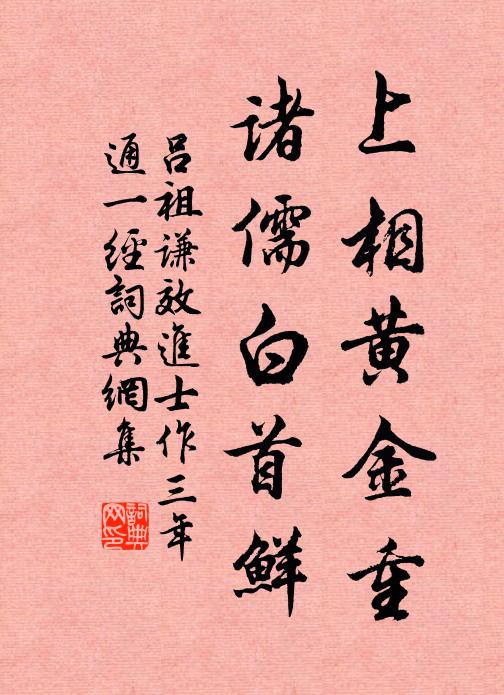 上相黄金重
诸儒白首鲜
吕祖谦效進士作三年
通一經詞典網集
詞典網印